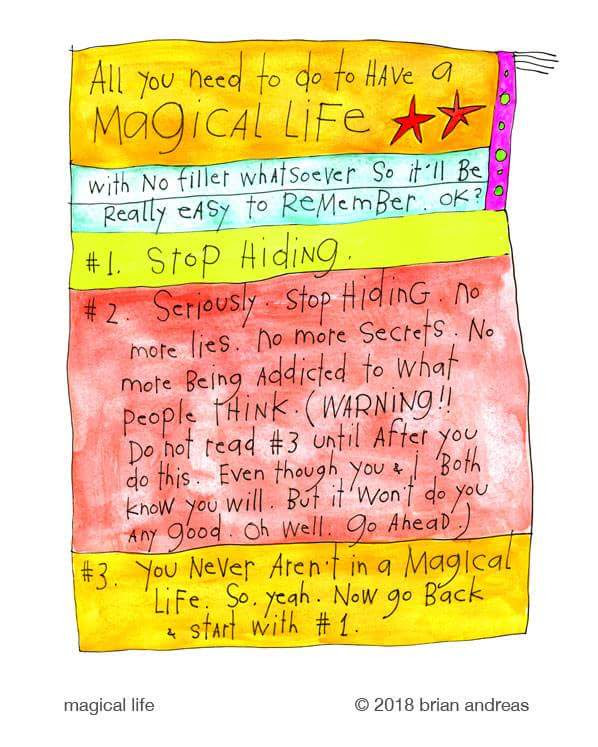 All you need to do to HAve a
MagiCAL LiFe
with No filler whAtsoever So it'll Be
Really eASy to ReMemBer. OK?
#1. StoP HidiNg.
#2. Seriously. Stop HidinG. no
more lies. no more Secrets. No
more Being Addicted to what
people tHink. (WARNiNg!!
Do not read #3 until After you
do this. Even though you & i Both
know you will. But it won't do you
ANy good. Oh well. go AheaD.)
#3. You Never Aren't in a Magical
LiFe. So, yeah. Now go Back
& stArt with #1.
magical life © 2018 brian andreas